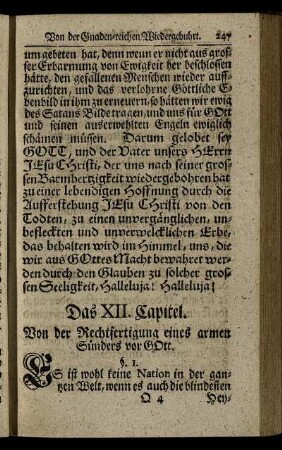 Von der Gnaden-reichen Wiedergebuhrt. 247
um gebeten hat, denn wenn er nicht aus gros-
ser Erbarmung von Ewigkeit her beschlossen
hätte, den gefallenen Menschen wieder auff-
zurichten, und das verlohrne Göttliche E-
benbild in ihm zu erneuern, so hätten wir ewig
des Satans Bilde tragen, und uns für GOtt
und seinen auserwehlten Engeln ewiglich
schämen müssen. Darum gelobet sey
GOTT, und der Vater unsers HErrn
JEsu CHristi, der uns nach seiner gros-
sen Barmhertzigkeit wiedergebohren hat
zu einer lebendigen Hoffnung durch die
Aufferstehung JEsu CHristi von den
Todten, zu einen unvergänglichen, un-
befleckten und unverwelcklichen Erbe,
das behalten wird im Himmel, uns, die
wir aus GOttes Macht bewahret wer-
den durch den Glauben zu solcher gros-
sen Seeligkeit, Halleluja! Halleluja!
Das XII. Capitel.
Von der Rechtfertigung eines armen
Sünders vor GOtt.
§. 1.
ES ist wohl keine Nation in der gan-
tzen Welt, wenn es auch die blindesten
Q 4 Hey-